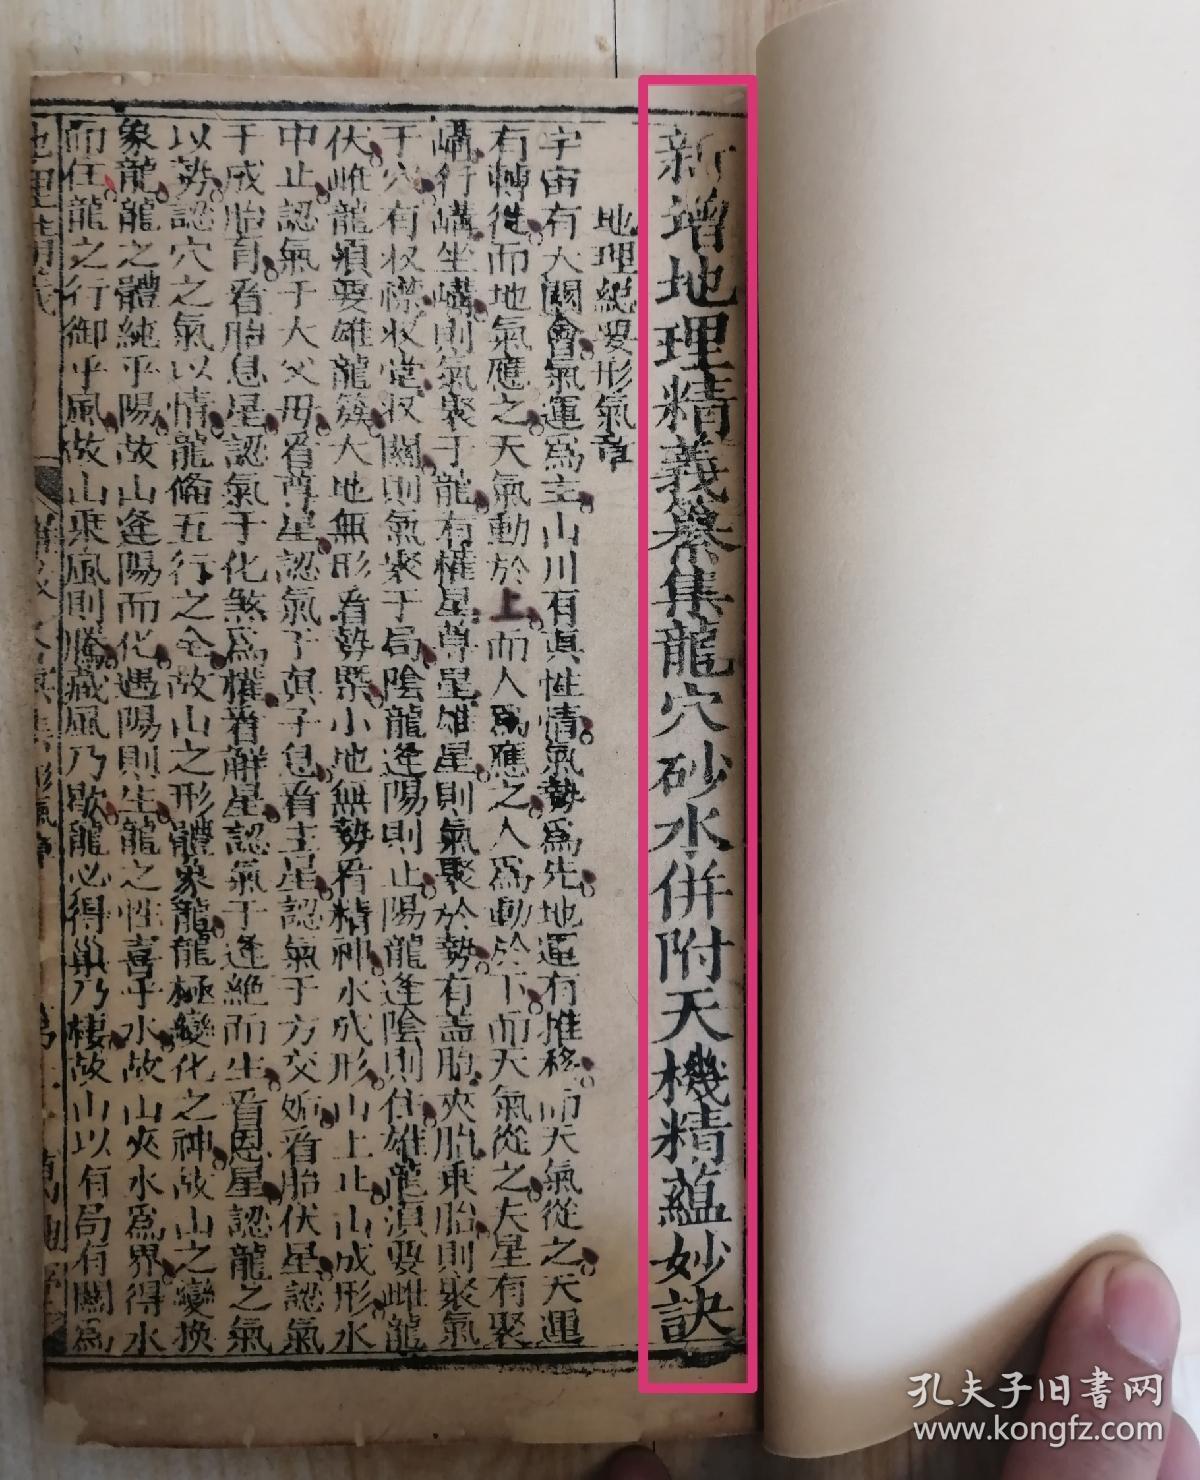 新增地理精義纂集龍穴砂水併附天機精蘊妙訣
地理總要形氣章
宇宙有大關會氣運爲主山川有真性情氣勢爲先地運有推移而天氣從之天運
有轉徙而地氣應之天氣動於上而人爲應之人爲動於下而天氣從之夫星有聚
講行講坐講則氣聚于龍有權星尊星雄星則氣聚於勢有蓋胎夾胎乘胎則聚氣
于穴有收襟收堂收關則氣聚于局陰龍逢陽則止陽龍逢陰則住雄龍須要雌龍
伏雌龍須要雄龍簇大地無形看勢緊小地無勢看精神水成形山上止山成形水
中止認氣于大父母看尊星認氣于真子息看主星認氣于方交媾看胎伏星認氣
于成胎育看胎息星認氣于化煞爲權看解星認氣于逢絶而生看恩星認龍之氣
以勢認穴之氣以情龍備五行之全故山之形體象龍龍極變化之神故山之變換
象龍龍之體純乎陽故山逢陽而化遇陽則生龍之性喜乎水故山夾水爲界得水
而住龍之行御乎風故山乘風則騰藏風乃歇龍必得巢乃棲故山以有局有關爲
地理精義
形氣章
孔夫子旧书网
www.kongfz.com